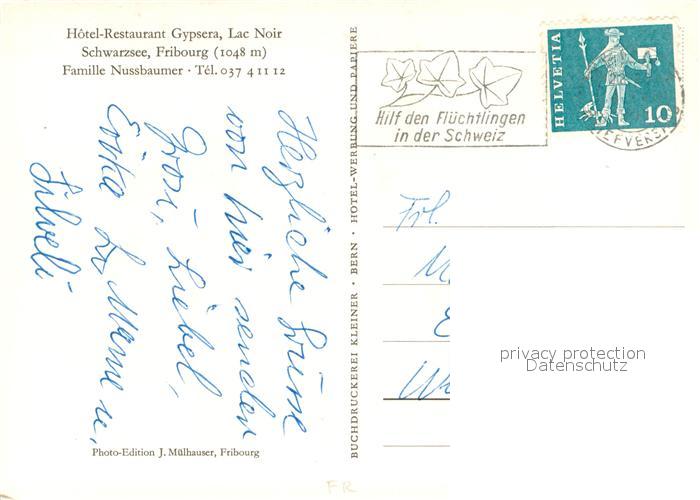 Hôtel-Restaurant Gypsera, Lac Noir
Schwarzsee, Fribourg (1048 m)
Famille Nussbaumer · Tél. 037 4 11 12
Herzliche Grüsse
von hier senden
Liebel,
Erika Mame u.
Silveli
Photo-Edition J. Mülhauser, Fribourg
BUCHDRUCKEREI KLEINER · BERN · HOTEL-WERBUNG UND PAPIERE
Hilf den Flüchtlingen
in der Schweiz
HELVETIA
10
Frl.
privacy protection
Datenschutz
FR